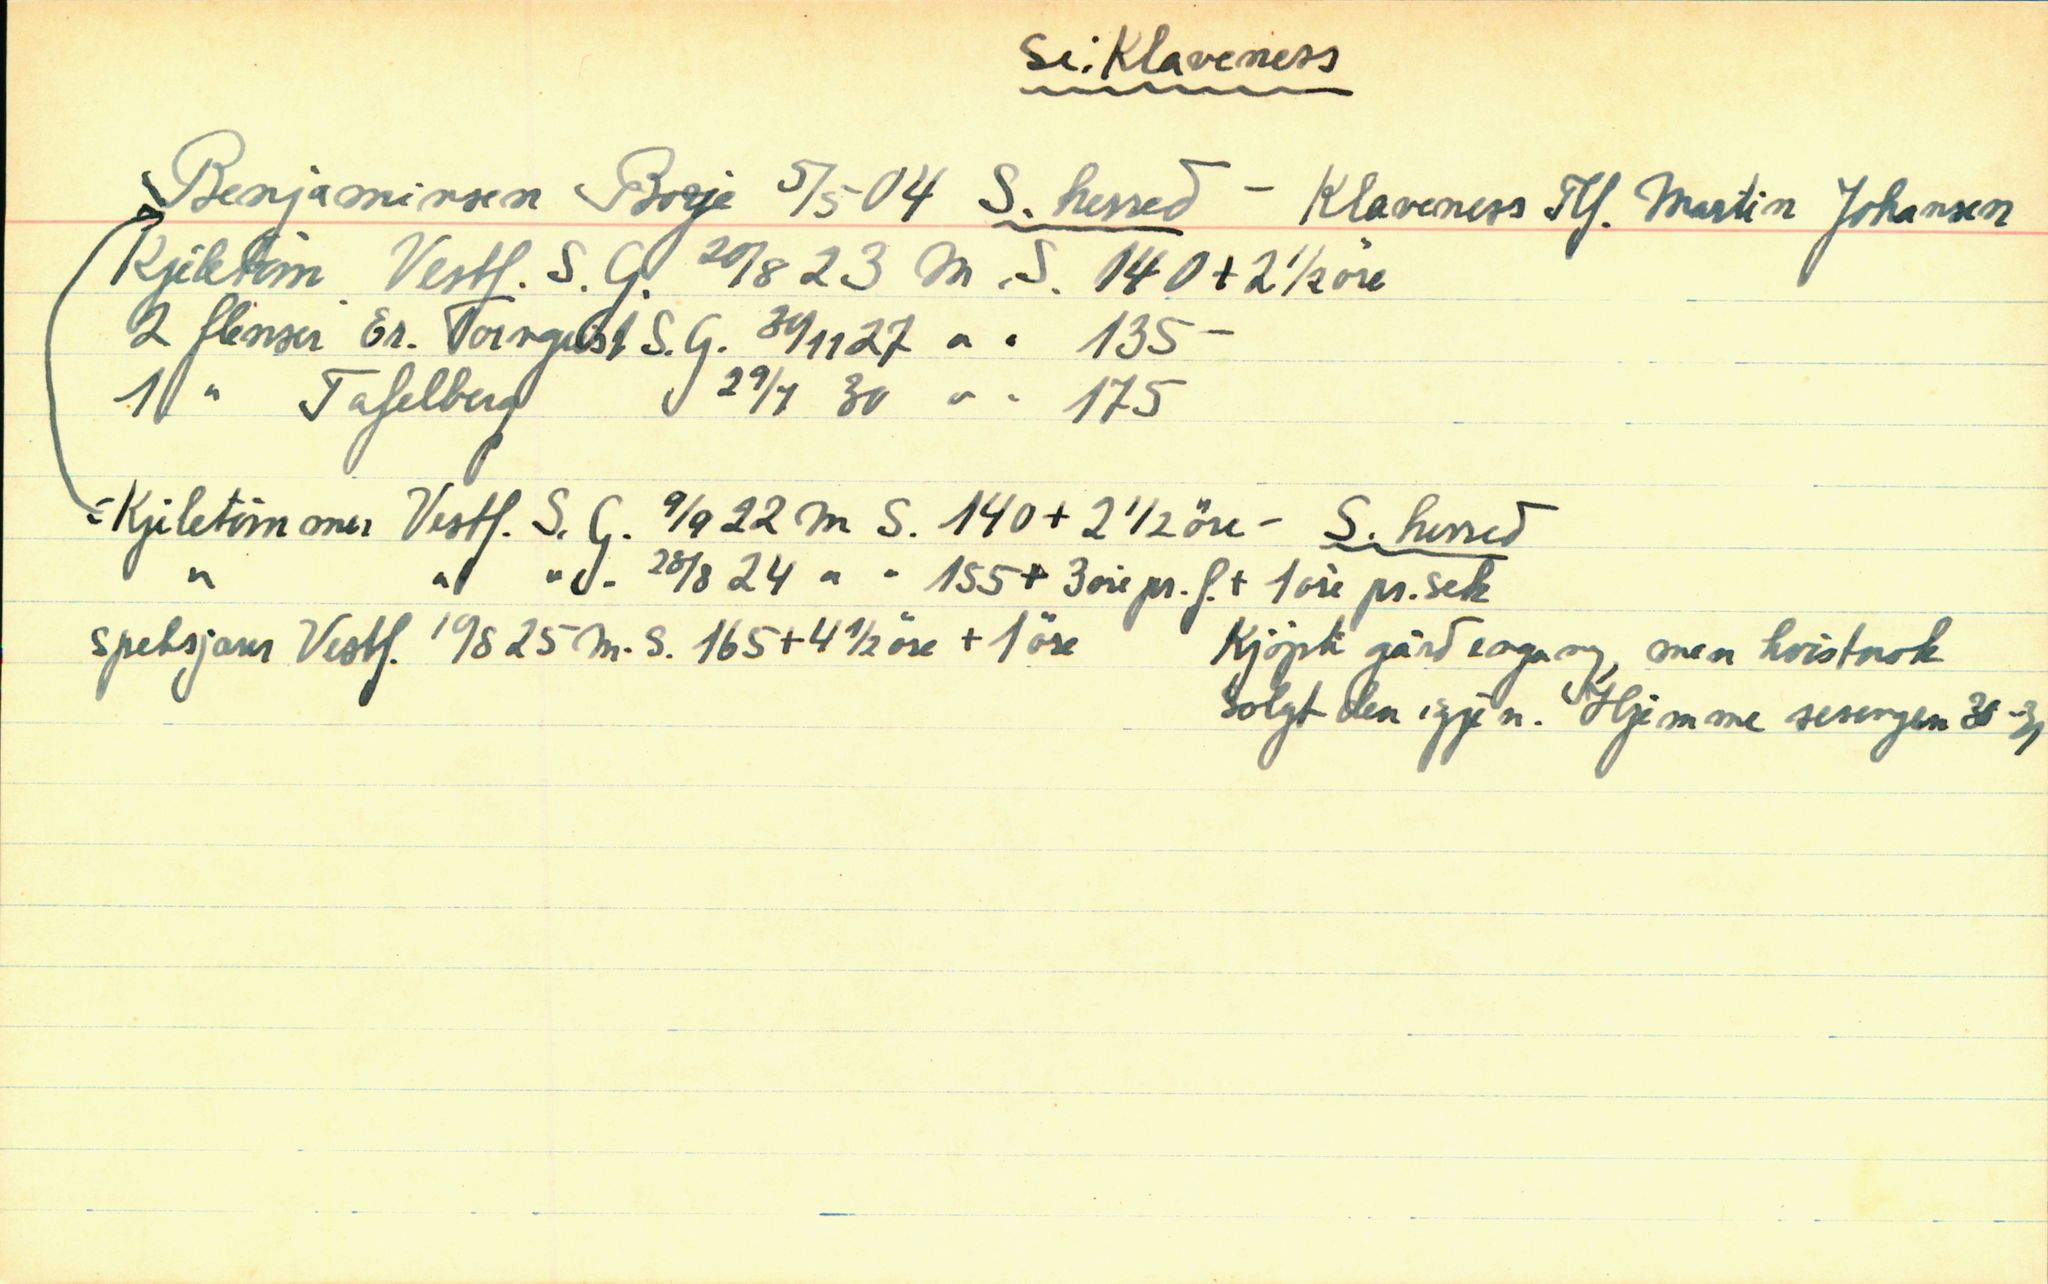 Se: Klaveness
Benjaminsen Borje 5/5-04 S. herred - Klaveness Tlf. Martin Johansen
Kjiletöm Vestf. S. G. 20/8 23 m. S. 140 + 2 1/2 öre
2 flenser Er. Tornquist S.G. 30/11 27 " " 135 -
1 " Tafelberg 29/7 30 " " 175
= Kjiletömmer Vestf. S. G. 9/9 22 m S. 140 + 2 1/2 öre - S. herred
" " " " 28/8 24 " " 155 + 3 öre pr. f. + 1 öre pr. sek
speksjarer Vestf. 19/8 25 m. S. 165 + 4 1/2 öre + 1 öre Kjöpte gård engang, men hvistnok
solgt den igjen. Hjemme sesongen 30-31